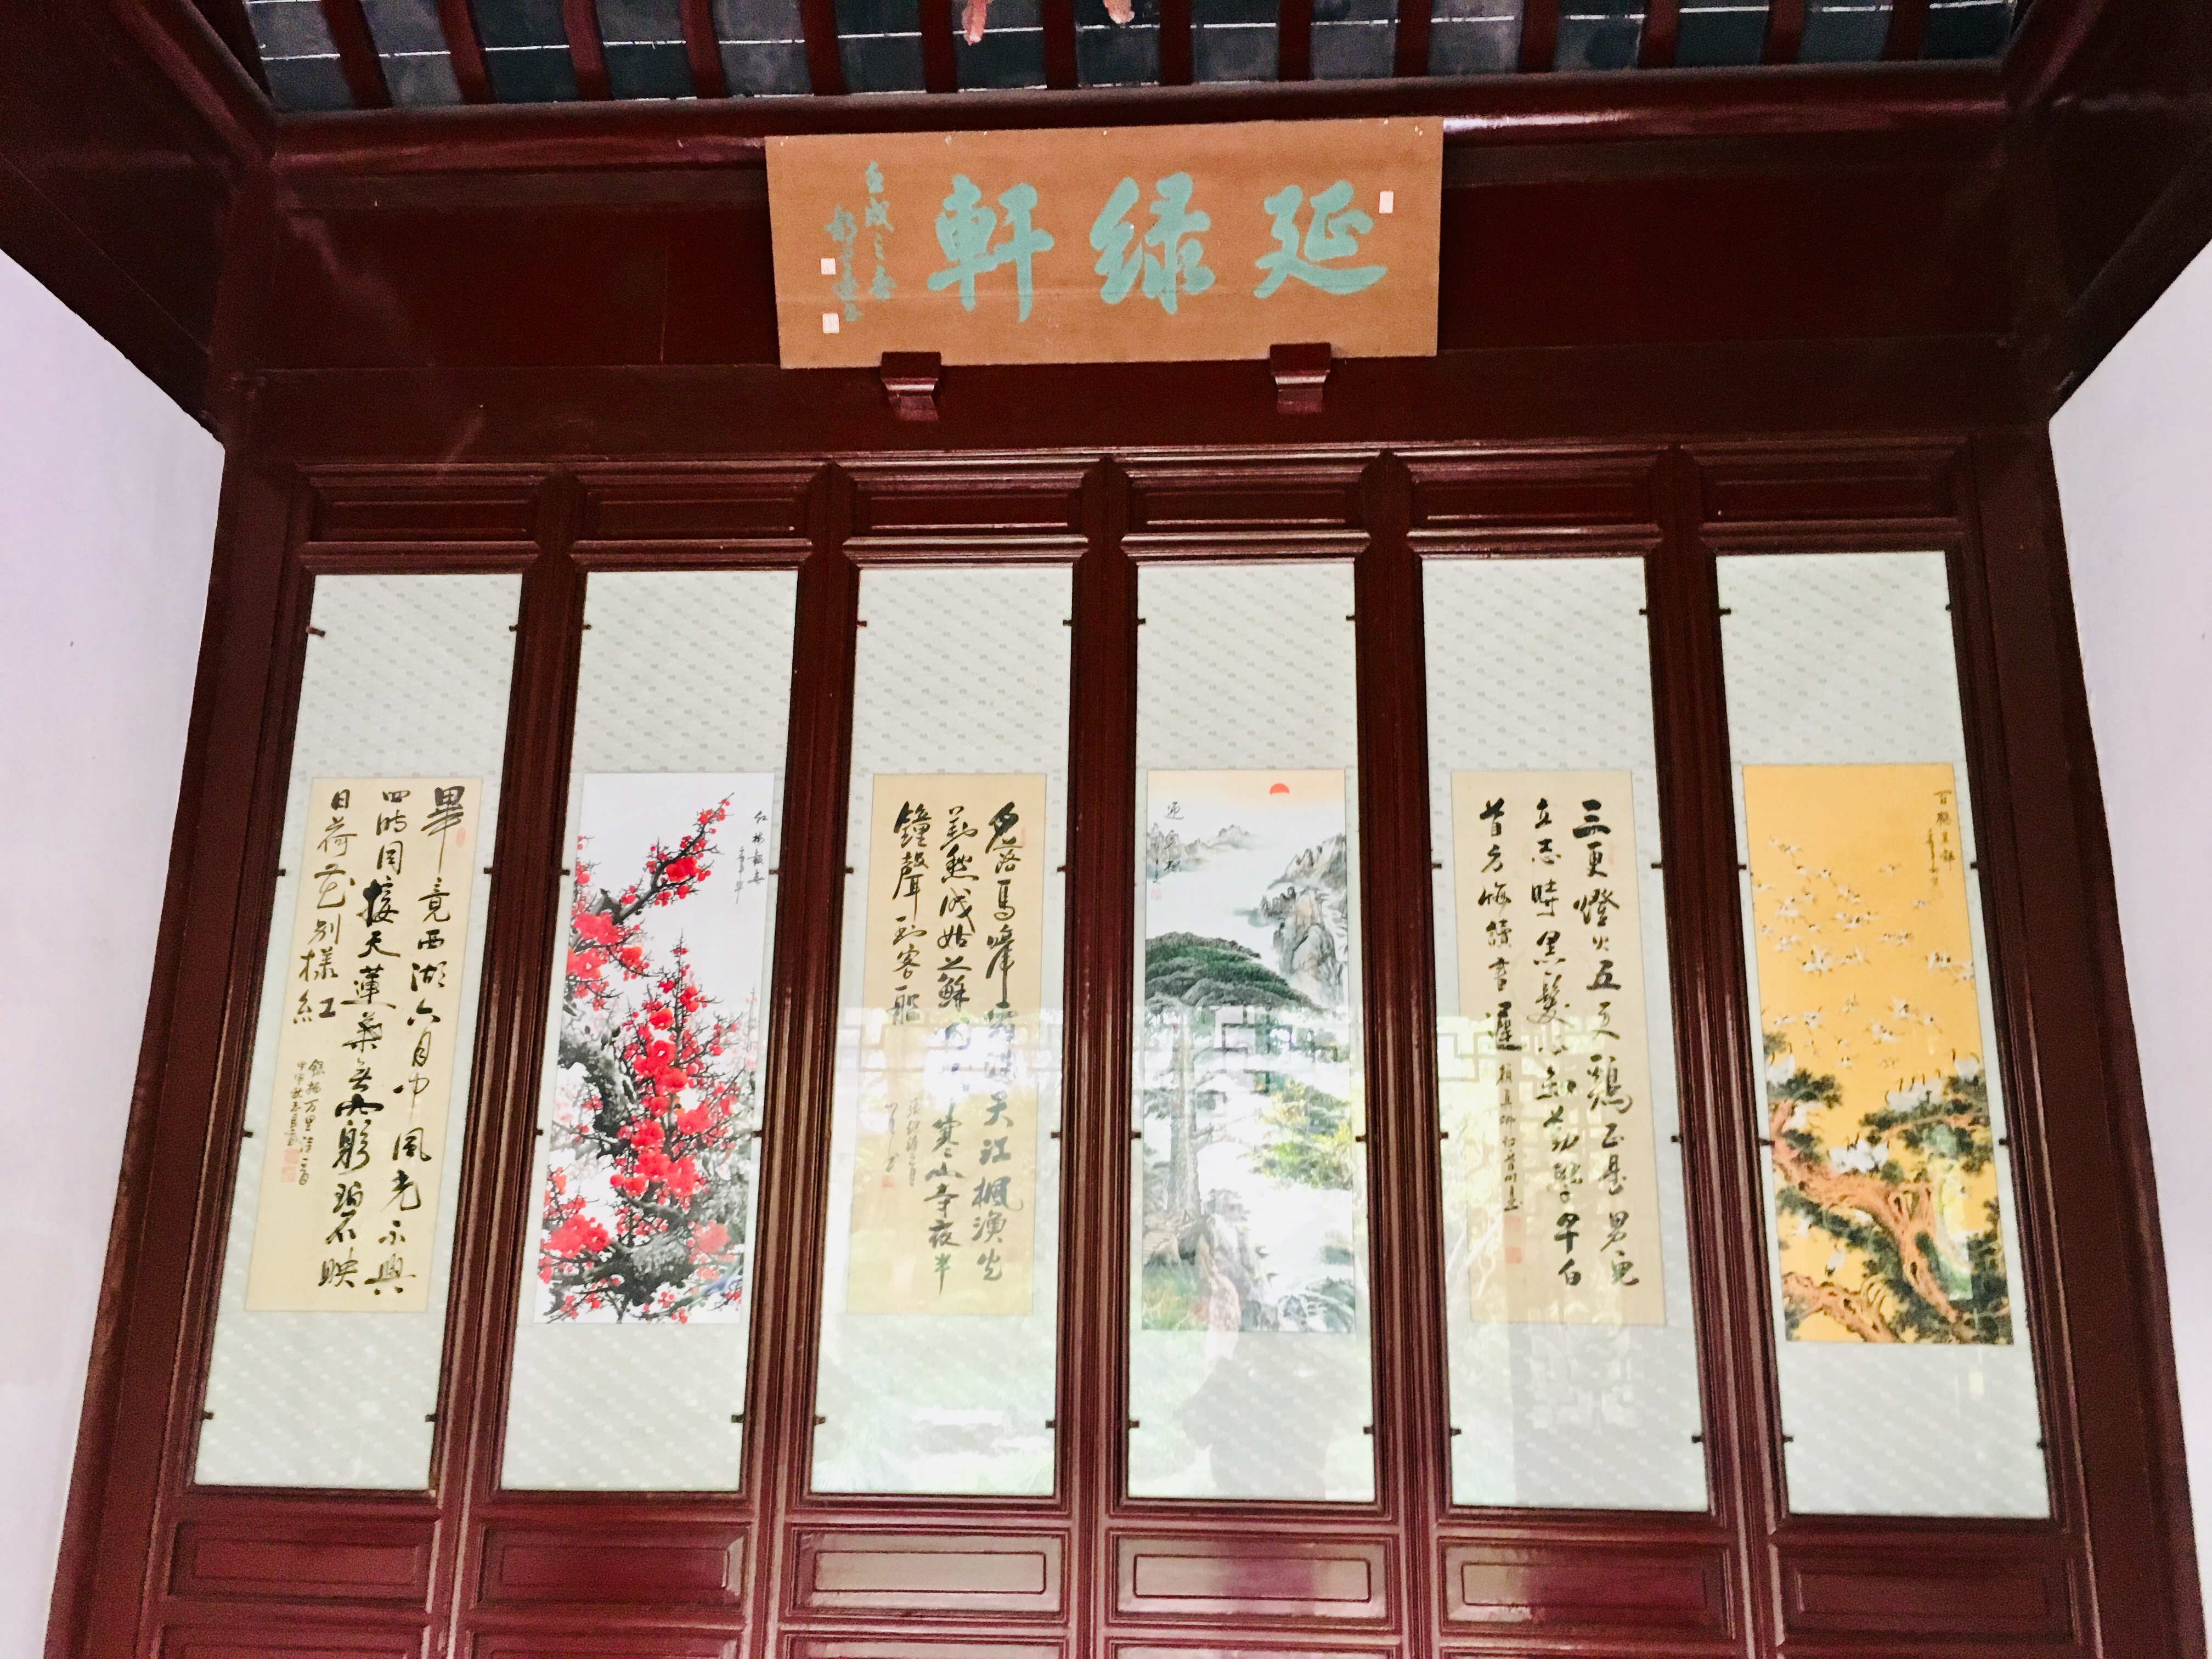 延绿軒
三更燈火五更鷄正是男兒
立志時黑髮不知勤學早白
首方悔讀書遲
迎客松
月落烏啼霜滿天江楓漁火
對愁眠姑蘇城外寒山寺夜半
鐘聲到客船
红梅報春
畢竟西湖六月中風光不與
四時同接天蓮葉無窮碧映
日荷花别樣紅
錄楊万里詩一首